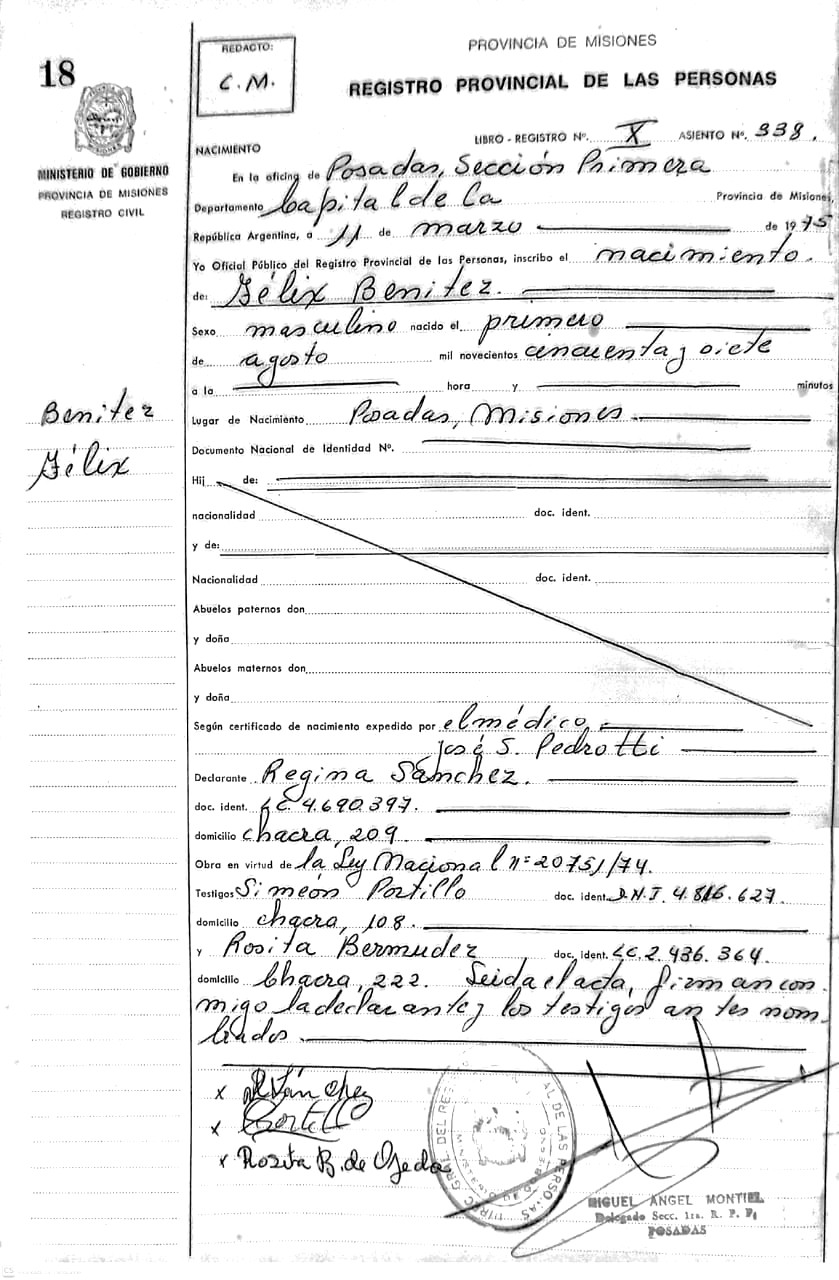 18
MINISTERIO DE GOBIERNO
PROVINCIA DE MISIONES
REGISTRO CIVIL
Benitez
Félix
REDACTO:
C.M.
PROVINCIA DE MISIONES
REGISTRO PROVINCIAL DE LAS PERSONAS
LIBRO - REGISTRO Nº. X ASIENTO Nº. 338.
NACIMIENTO
En la oficina de Posadas, Sección Primera
Departamento Capital de la Provincia de Misiones,
República Argentina, a 11 de marzo de 1975
Yo Oficial Público del Registro Provincial de las Personas, inscribo el nacimiento.
de: Félix Benitez.
Sexo masculino nacido el primero
de agosto mil novecientos cincuenta y siete
a la hora y minutos
Lugar de Nacimiento Posadas, Misiones
Documento Nacional de Identidad Nº.
Hij de:
nacionalidad doc. ident.
y de:
Nacionalidad doc. ident.
Abuelos paternos don
y doña
Abuelos maternos don
y doña
Según certificado de nacimiento expedido por el médico,
José S. Pedrotti
Declarante Regina Sánchez.
doc. ident. LC. 4.690.397.
domicilio chacra, 209
Obra en virtud de la Ley Nacional nº 20751/74.
Testigos Simeón Portillo doc. ident. D.N.I 4.816.627.
domicilio chacra, 108.
y Rosita Bermudez doc. ident. LC. 2.436.364.
domicilio Chacra, 222. Leida el acta, firman con
migo la declarante y los testigos antes nom
brados.
x R Sánchez
x Portillo
x Rosita B. de Ojeda
DIREC. GRAL. DEL REG AL DE LAS PERSONAS
MINISTERIO DE GOBIERNO
MIGUEL ANGEL MONTIEL
Delegado Secc. 1ra. R. P. P.
POSADAS